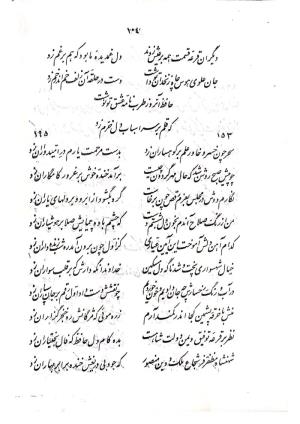 دیگران قرعه قسمت همه بر عیش زدند دل غمدیده ما بود که هم بر غم زد
جان علوی هوس چاه زنخدان تو داشت دست در حلقه آن زلف خم اندر خم زد
حافظ آن روز طربنامه عشق تو نوشت
که قلم بر سر اسباب دل خرم زد
۱۵۳ ۱۹۵
سحر چون خسرو خاور علم بر کوهساران زد بدست مرحمت یارم در امیدواران زد
چو پیش صبح روشن شد که حال مهر گردون چیست برآمد خنده خوش بر غرور کامکاران زد
نگارم دوش در مجلس بعزم رقص چون برخاست گره بگشود از ابرو و بر دلهای یاران زد
من از رنگ صلاح آندم بخون دل بشستم دست که چشم باده پیمایش صلا بر هوشیاران زد
کدام آهن دلش آموخت این آیین عیاری کز اول چون برون آمد ره شب زنده داران زد
خیال شهسواری پخت و شد ناگه دل مسکین خداوندا نگه دارش که بر قلب سواران زد
در آب و رنگ رخسارش چه جان دادیم و خون خوردیم چو نقشش دست داد اول رقم بر جان سپاران زد
منش با خرقه پشمین کجا اندر کمند آرم زره مویی که مژگانش ره خنجر گزاران زد
نظر بر قرعه توفیق و یمن دولت شاهست بده کام دل حافظ که فال بختیاران زد
شهنشاه مظفر فر شجاع ملک و دین منصور که جود بی دریغش خنده بر ابر بهاران زد